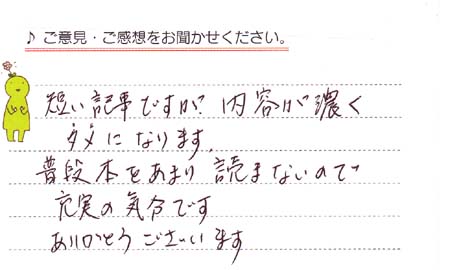 ♪ ご意見・ご感想をお聞かせください。
短い記事ですが、内容が濃く
タメになります。
普段本をあまり読まないので
充実の気分です
ありがとうございます